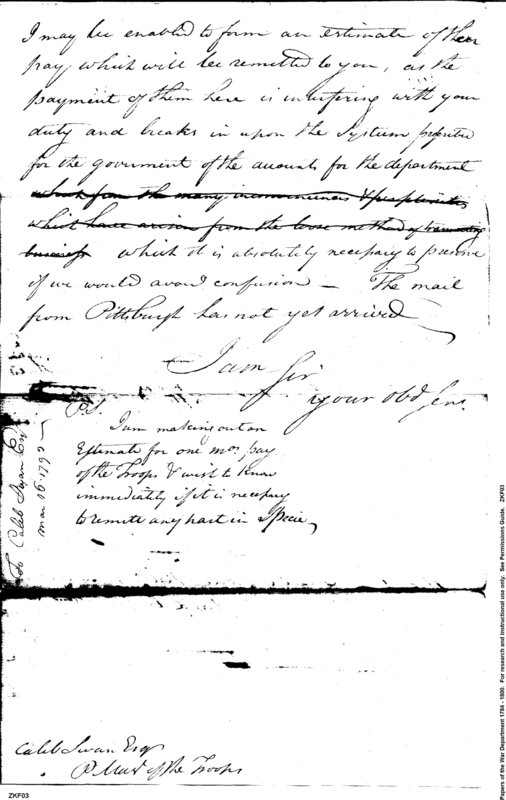 I may be enabled to form an estimate of their
pay which will be remitted to you, as the
payment of them here is interfering with your
duty and breaks in upon the System
for the goverment of the accounts for the department
which from the many inconveniences & perplexities
which have arisen from the loose method of transacting
business which it is absolutely necessary to pursue
if we would avoid confusion — The mail
from Pittsburgh has not yet arrived
I am Sir
your Obd Serv.
P.S.
I am making out an
Estimate for one mos. pay
of the Troops & wish to know
immediately if it is necessary
to remitt any part in Specie
To Caleb Swan Esq
mar 16. 1792
Caleb Swan Esq
P Mas. of the Troops
ZKF03
Papers of the War Department 1784 - 1800. For research and instructional use only. See Permissions Guide. ZKF03